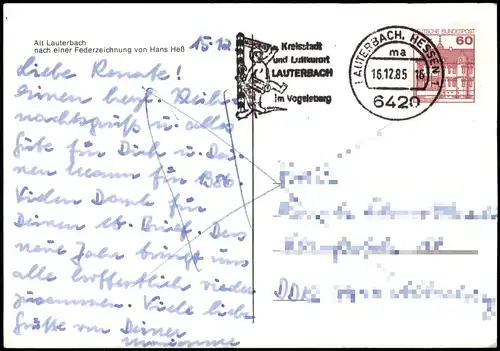 Alt Lauterbach
nach einer Federzeichnung von Hans Heß
15.12
Liebe Renate!
Einen herzl. Weih-
nachtsgruß u. alles
Gute für Dich u. Dei-
nen Mann für 1986.
Vielen Dank für
Deinen lb. Brief. Das
neue Jahr bringt uns
alle hoffentlich wieder
zusammen. Viele liebe
Grüße von Deiner
Kreisstadt
und Luftkurort
LAUTERBACH
im Vogelsberg
LAUTERBACH, HESSEN
ma
16.12.85-16
6420
DEUTSCHE BUNDESPOST
60
DDR